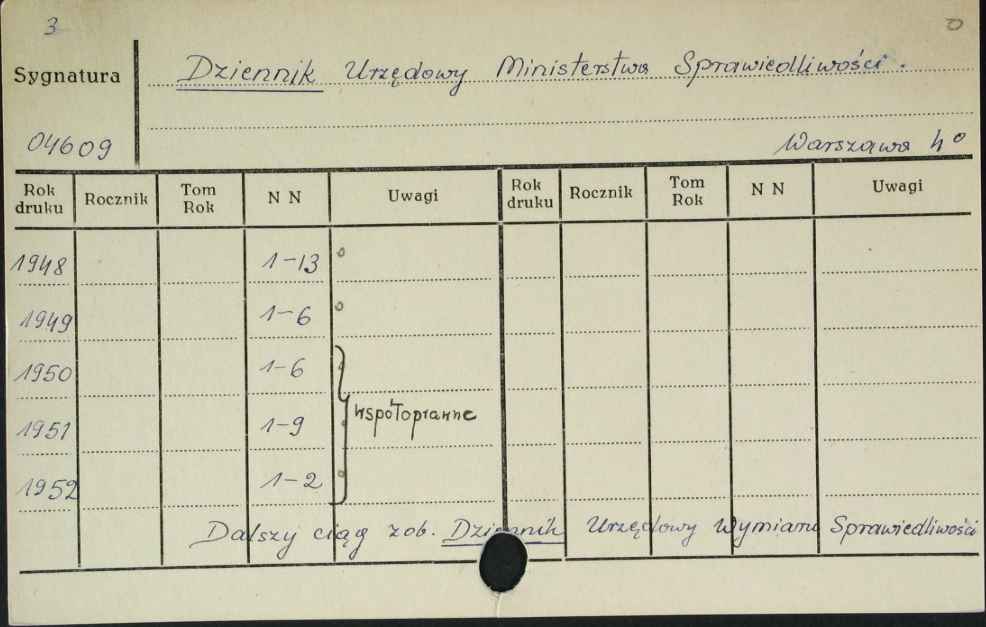 3
Sygnatura
Dziennik Urzędowy Ministerstwa Sprawiedliwości.
04609
Warszawa 4°
Rok druku Rocznik Tom Rok N N Uwagi Rok druku Rocznik Tom Rok N N Uwagi
1948 1-13
1949 1-6
1950 1-6
współoprawne
1951 1-9
1952 1-2
Dalszy ciąg zob. Dziennik Urzędowy Wymiaru Sprawiedliwości